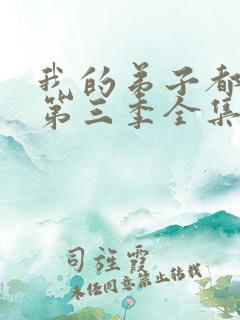 我的弟子都
第三季全集
司旌霞
未经同意禁止转载